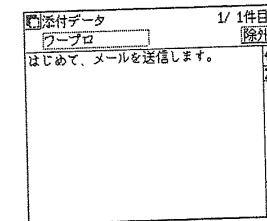 添付データ 1/ 1件目
ワープロ 除外
はじめて、メールを送信します。